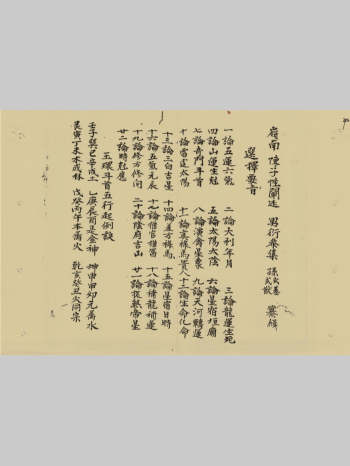 嶺南 陳子性闡述 男衍參集 孫 纂緝
選擇要旨
一論五運六氣 二論大利年月 三論龍運生死
四論山運生剋 五論太陽太陰 六論星宿垣廟
七論奇門斗首 八論演禽星象 九論天河轉運
十論雷霆太陽 十一論真祿馬貴人 十二論生命化命
十三論三白吉星 十四論差方祿馬 十五論星宿日時
十六論五氣元辰 十七論催官福富 十八論補龍補運
十九論修方修向 二十論陰府吉山 廿一論捉煞帝星
廿二論時剋應
玉環斗首五行起例訣
壬子巽巳辛戌土 乙庚辰酉是金神 坤申甲卯元屬水
艮寅丁未木成林 戊癸丙午本屬火 乾亥癸丑火同渠